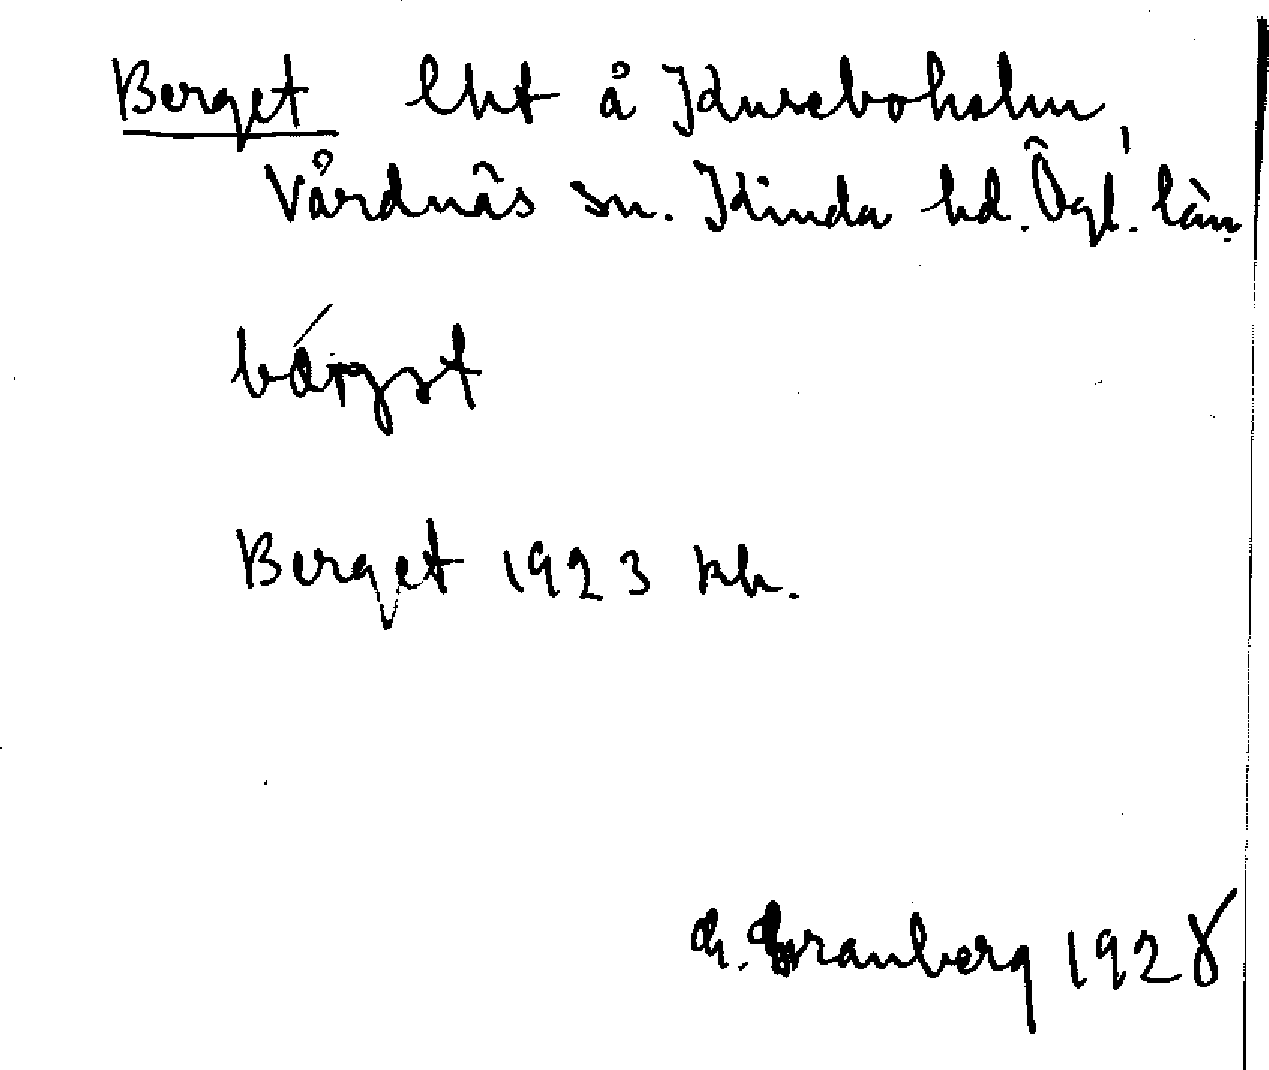 Berget lht å Knseboholm,
Vårdnäs sn. Kinda hd. Ögl. län
Berget 1923 kk.
G. Granberg 1928